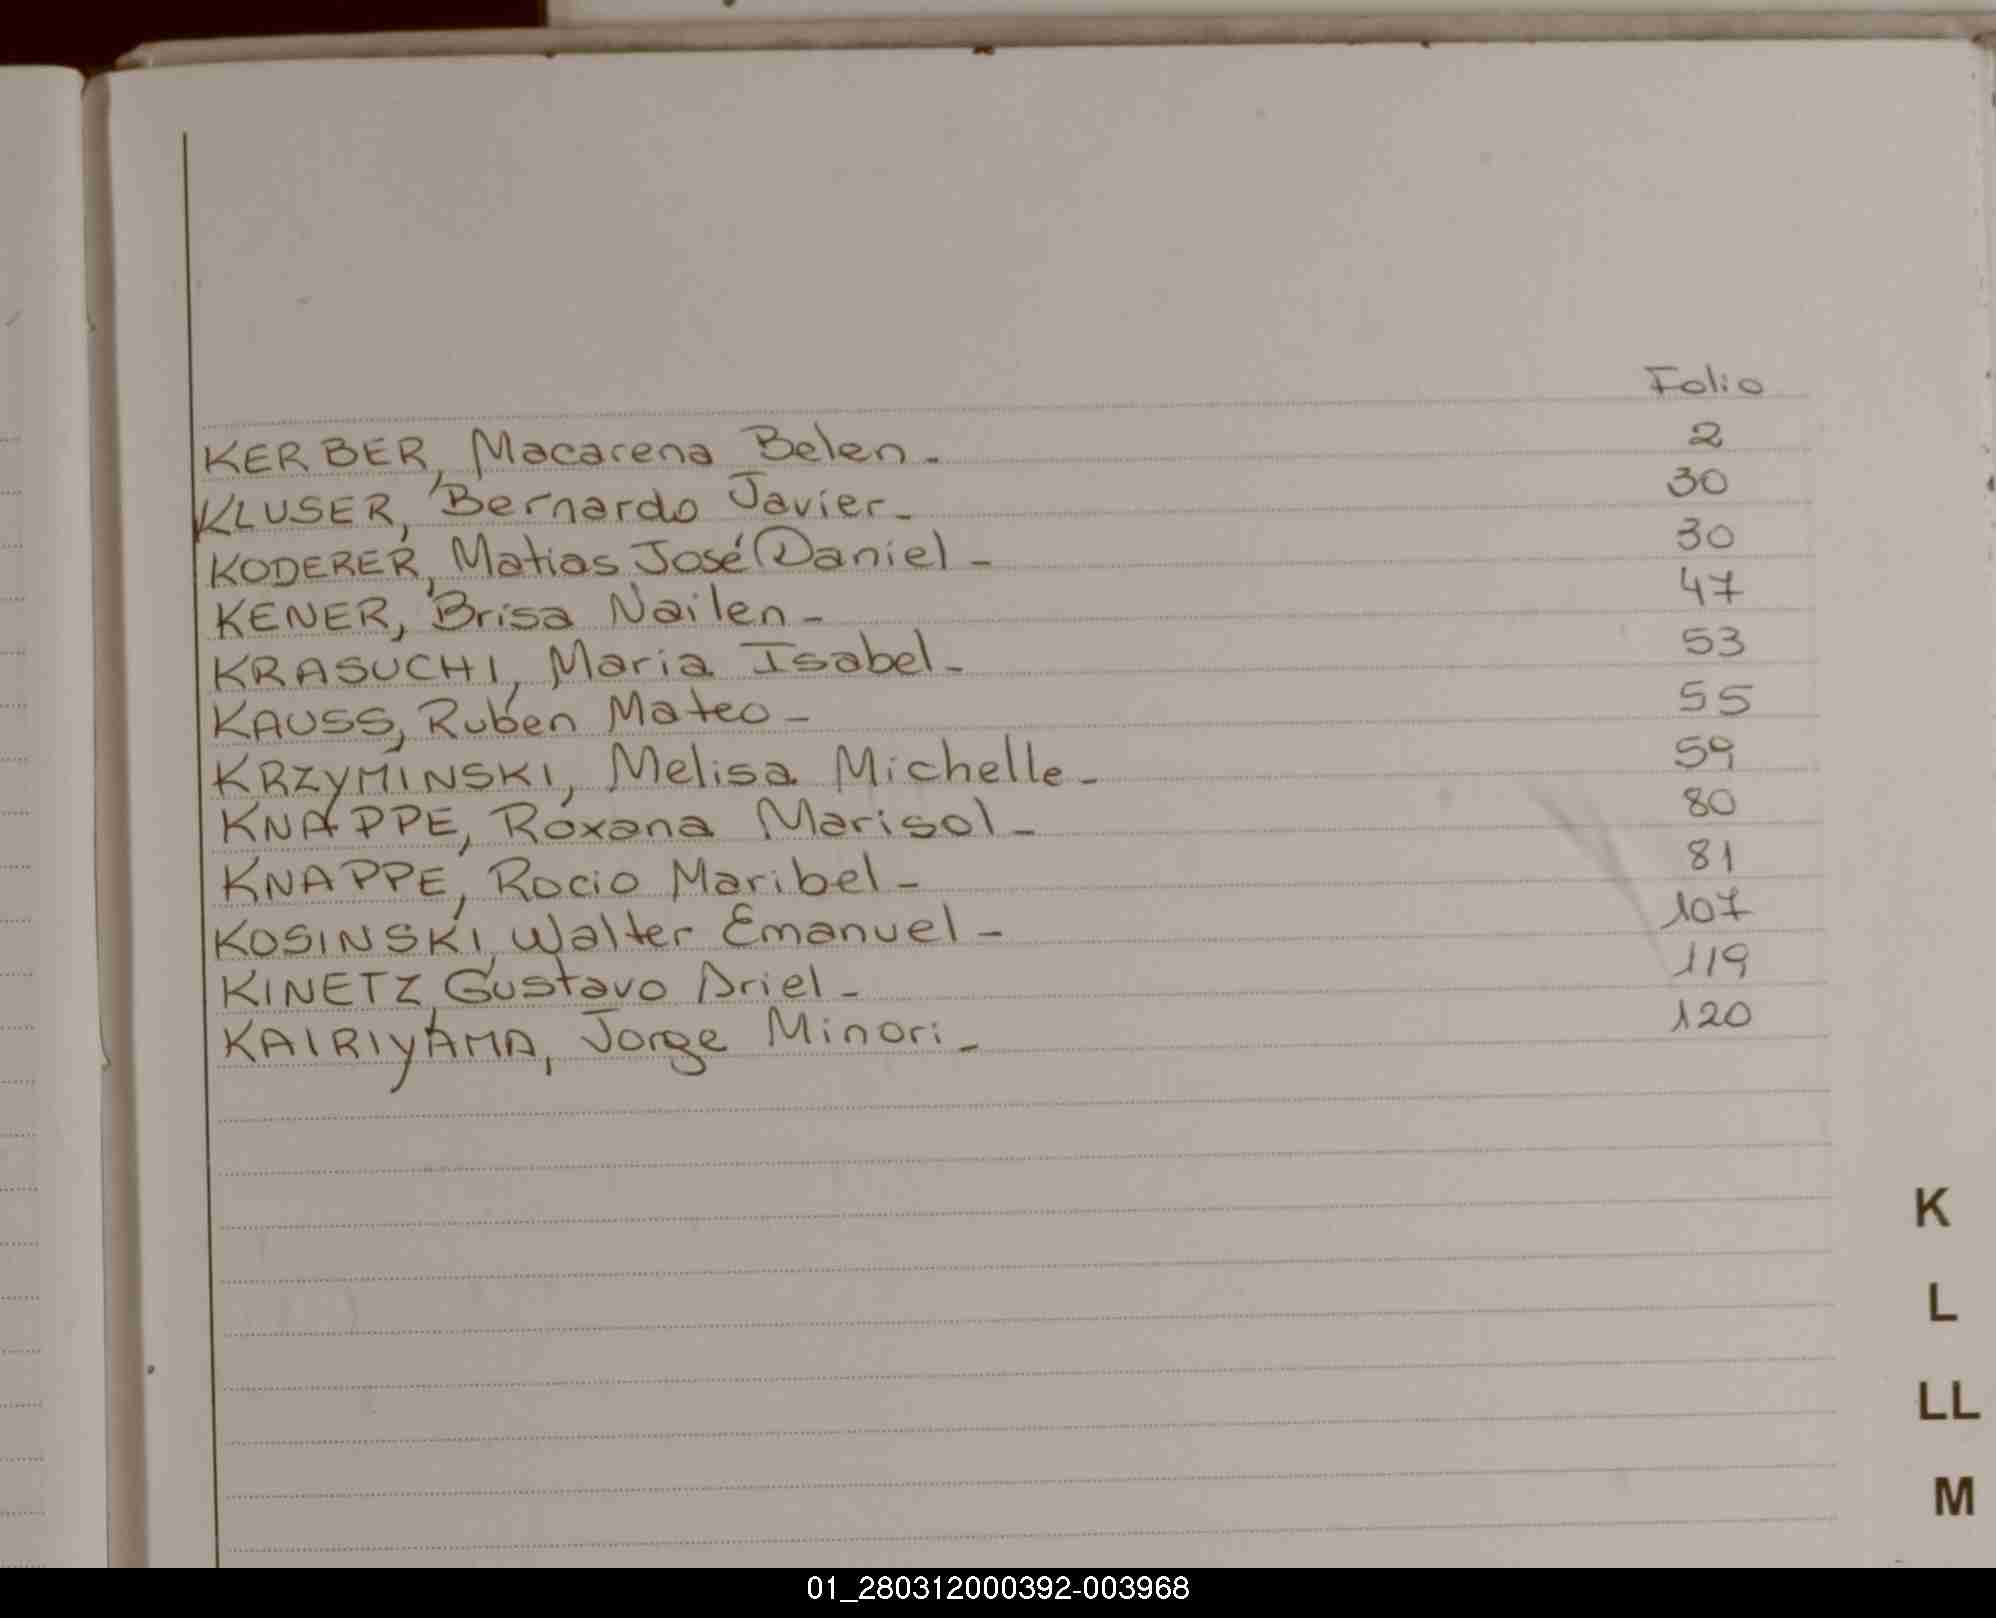 Folio
KERBER, Macarena Belen - 2
KLUSER, Bernardo Javier - 30
KODERER, Matias José Daniel - 30
KENER, Brisa Nailen - 47
KRASUCHI, Maria Isabel - 53
KAUSS, Ruben Mateo - 55
KRZYMINSKI, Melisa Michelle - 59
KNAPPE, Roxana Marisol - 80
KNAPPE, Rocio Maribel - 81
KOSINSKI, Walter Emanuel - 107
KINETZ, Gustavo Ariel - 119
KAIRIYAMA, Jorge Minori - 120
K
L
LL
M
01_280312000392-003968